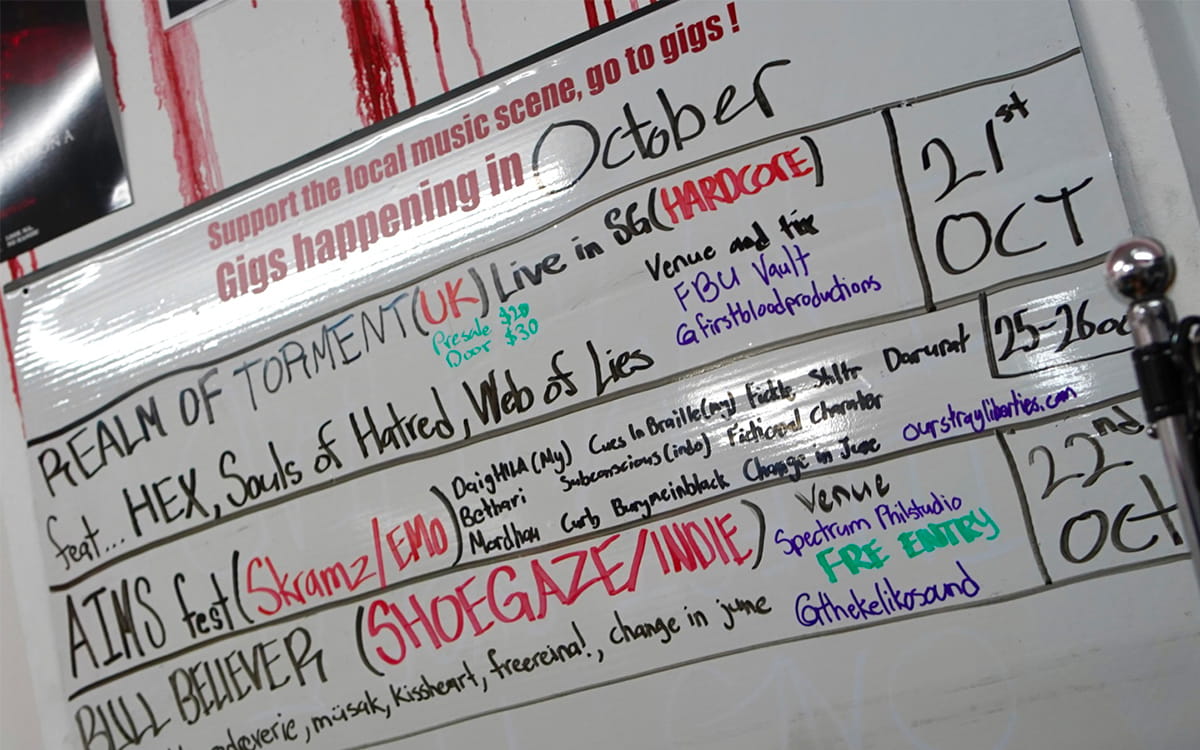 Support the local music scene, go to gigs !
Gigs happening in October
REALM OF TORMENT (UK) Live in SG (HARDCORE)
Presale $20
Door $30
Venue and tix
FBU Vault
@firstbloodproductions
21st
OCT
feat... HEX, Souls of Hatred, Web of Lies
AIMS fest (Skramz/EMO)
DaigHILA (My) Cues In Braille (my) Fickle Shltr Darurat
Bethari Subconscious (indo) Fictional Charater
Mordhau Curb Burymeinblack Change in June
ourstrayliberties.com
25-26
BULL BELIEVER (SHOEGAZE/INDIE)
Venue
Spectrum Philstudio
FRE ENTRY
@thekelikosound
22nd
OCT
müsak, kissheart, freereina!, change in june